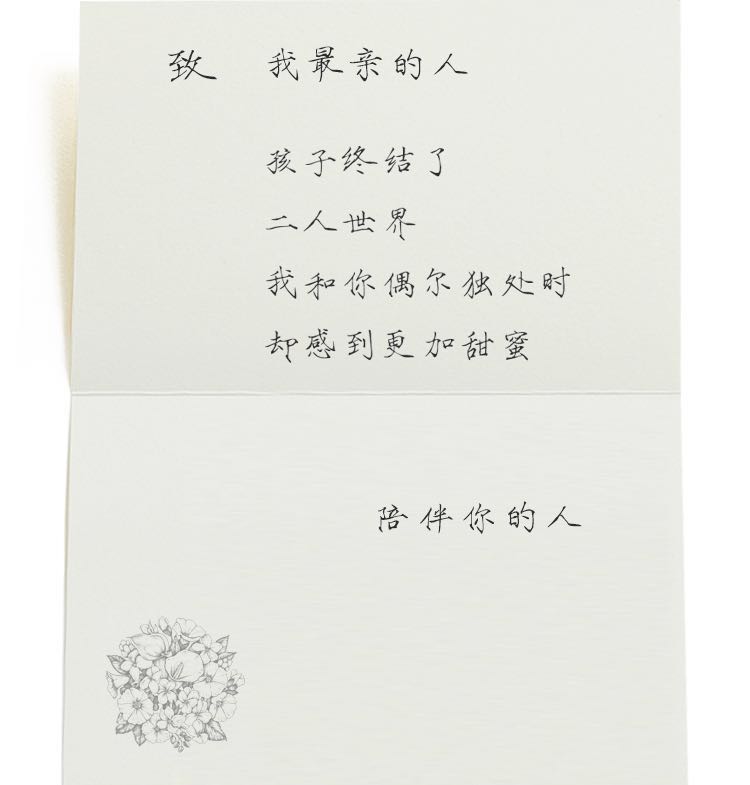 致 我最亲的人
孩子终结了
二人世界
我和你偶尔独处时
却感到更加甜蜜
陪伴你的人